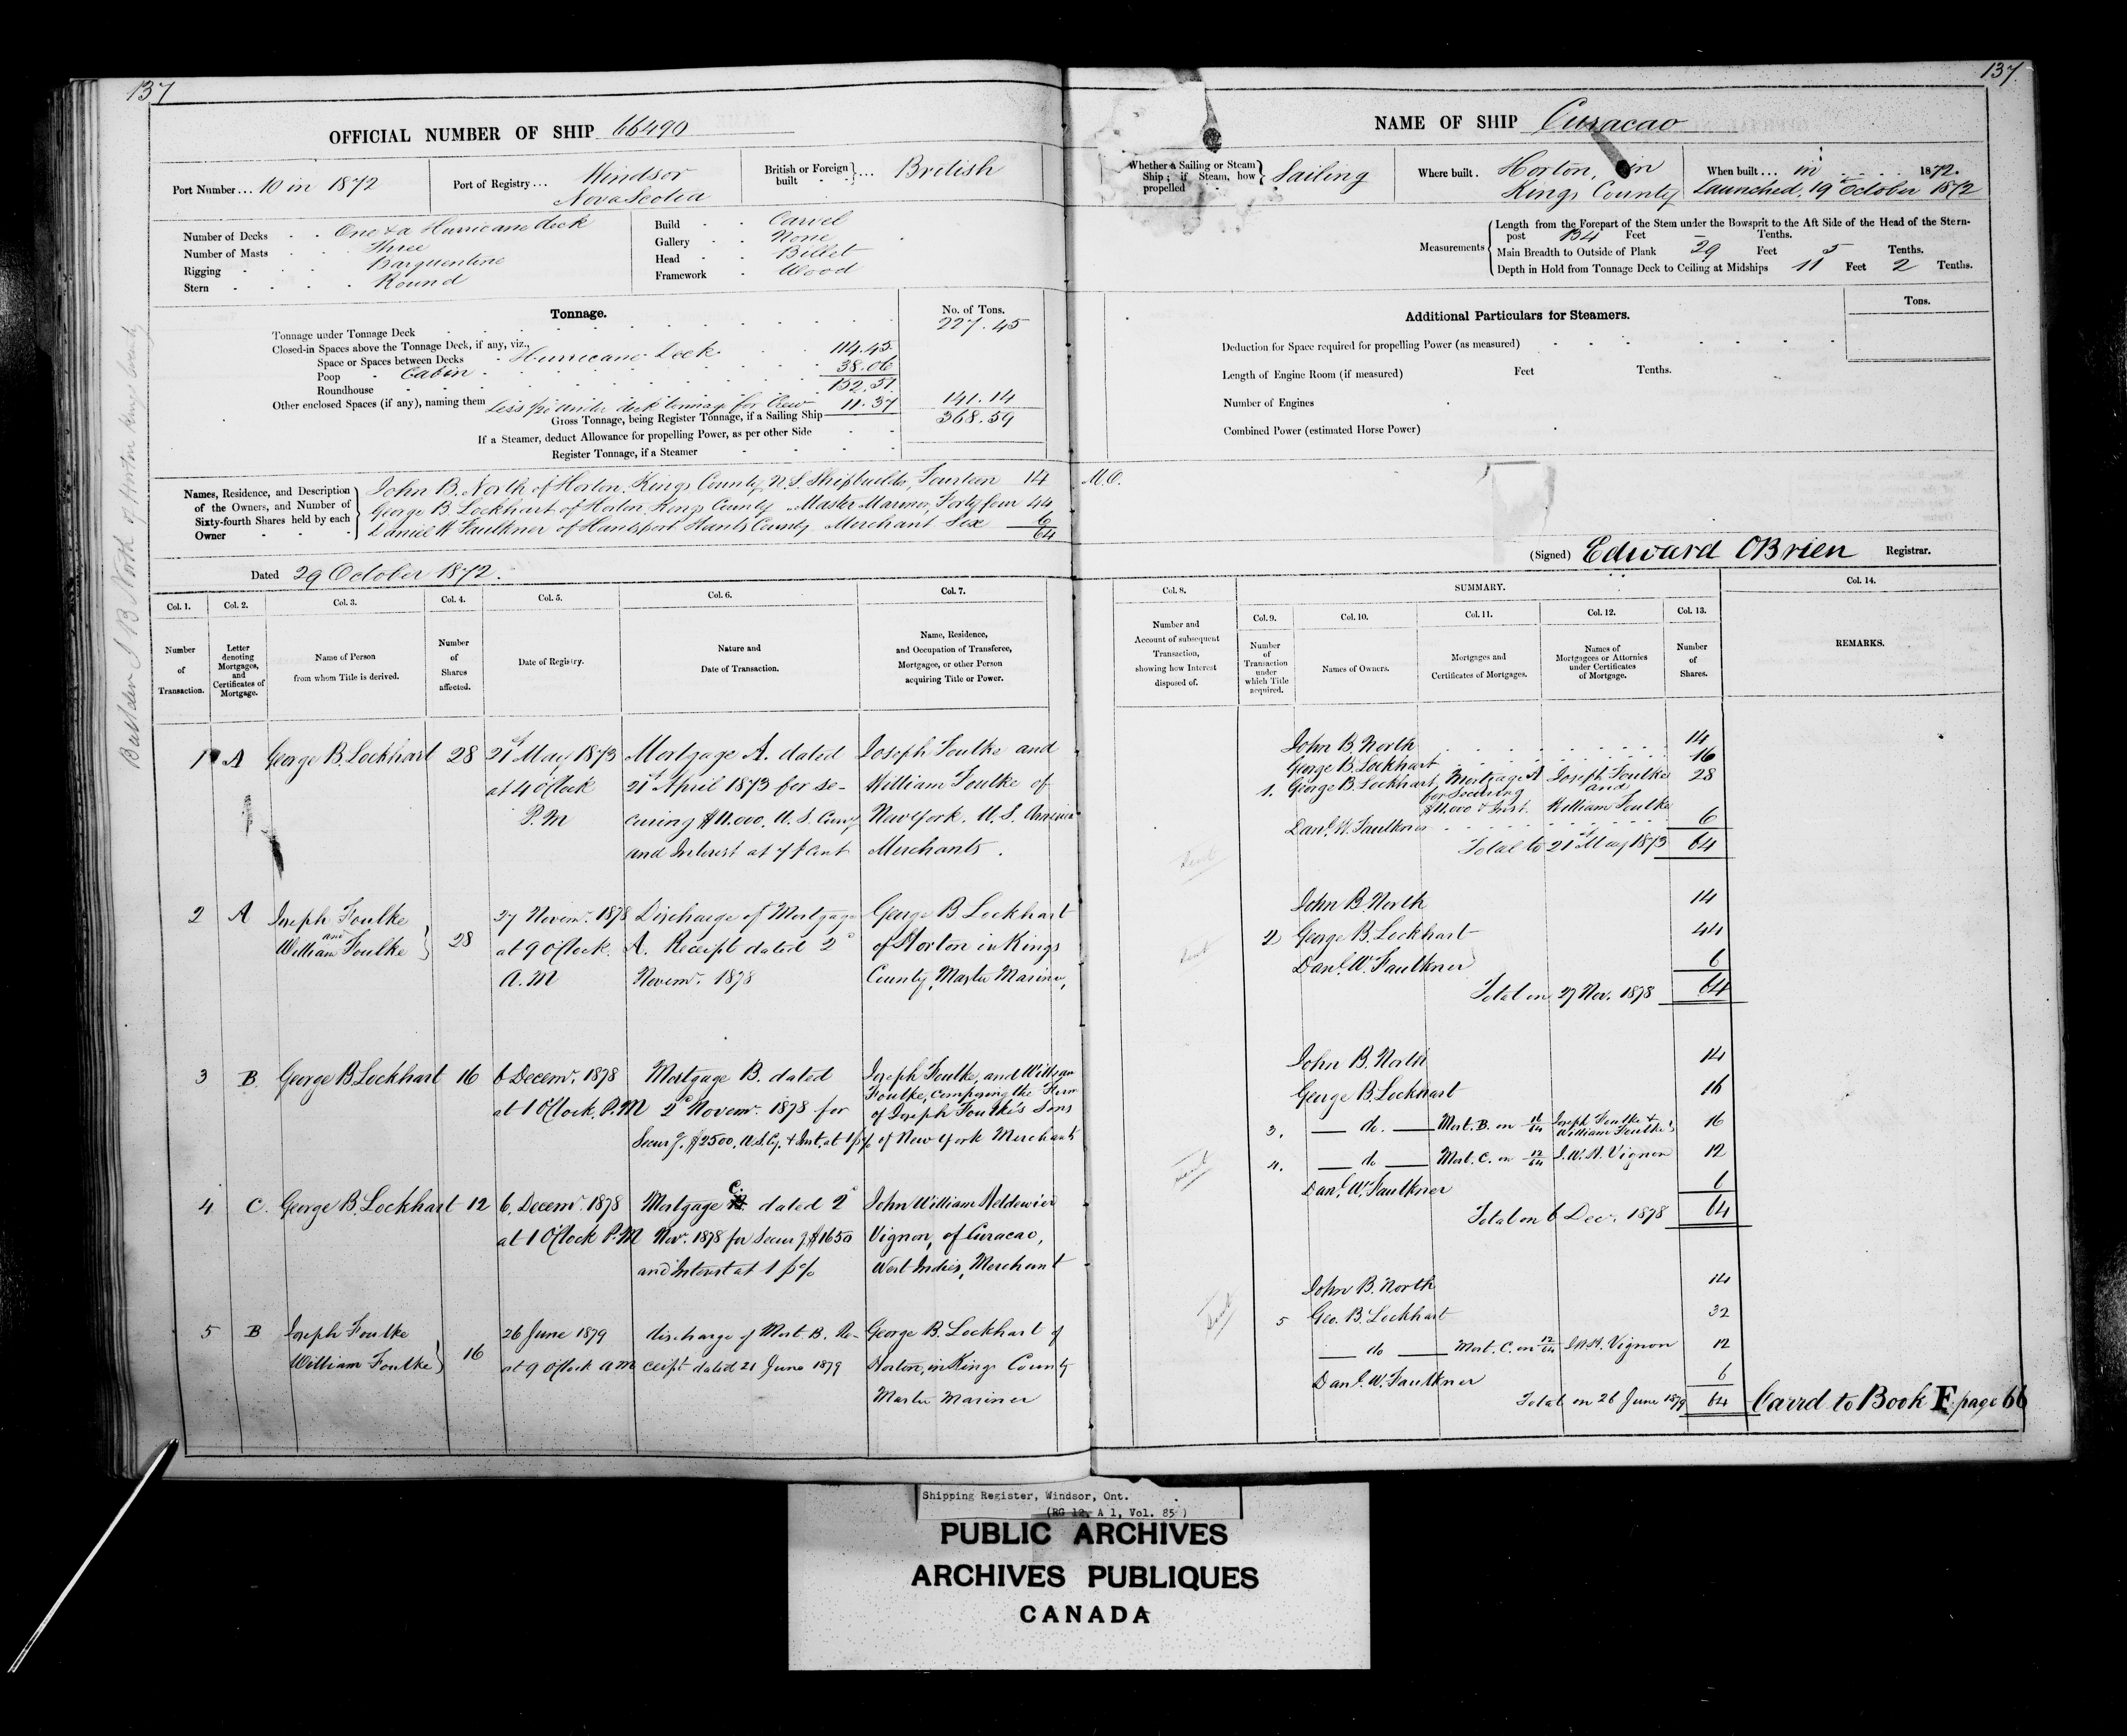 137
OFFICIAL NUMBER OF SHIP 66490
Port Number... 10 in 1872
Port of Registry... Windsor
Nova Scotia
British or Foreign built } ... British
Number of Decks . . One & a Hurricane deck
Number of Masts . . Three
Rigging . . . Barquentine
Stern . . . . Round
Build . . Carvel
Gallery . . None
Head . . Billet
Framework . Wood
Tonnage.
No. of Tons.
Tonnage under Tonnage Deck 227.45
Closed-in Spaces above the Tonnage Deck, if any, viz.,
Space or Spaces between Decks . Hurricane Deck 114.45
Poop . Cabin 38.06
Roundhouse 152.51
Other enclosed Spaces (if any), naming them Less for under deck tonnage for Crew 11.37 141.14
Gross Tonnage, being Register Tonnage, if a Sailing Ship 368.59
If a Steamer, deduct Allowance for propelling Power, as per other Side
Register Tonnage, if a Steamer
Names, Residence, and Description of the Owners, and Number of Sixty-fourth Shares held by each Owner
John B. North of Horton, Kings County, N.S. Shipbuilder, Fourteen 14
George B. Lockhart of Horton, Kings County Master Mariner, Forty four 44
Daniel W Faulkner of Hantsport Hants County Merchant Six 6
64
Dated 29 October 1872.
Col. 1. Col. 2. Col. 3. Col. 4. Col. 5. Col. 6. Col. 7.
Number of Transaction.
Letter denoting Mortgages, and Certificates of Mortgage.
Name of Person from whom Title is derived.
Number of Shares affected.
Date of Registry.
Nature and Date of Transaction.
Name, Residence, and Occupation of Transferee, Mortgagee, or other Person acquiring Title or Power.
1 A George B. Lockhart 28 21st May 1873 Mortgage A. dated Joseph Foulke and
at 4 O'Clock 21st April 1873 for se- William Foulke of
P.M curing $11.000. U.S. Curcy New York. U.S. America
and Interest at 7 P Cent Merchants.
2 A Joseph Foulke and William Foulke } 28 27 Novem. 1878 Discharge of Mortgage George B Lockhart
at 9 O'Clock. A. Receipt dated 2d of Horton in Kings
A.M Novem. 1878 County, Master Mariner,
3 B. George B Lockhart 16 6 Decem. 1878 Mortgage B. dated Joseph Foulke, and William
Foulke, composing the Firm
at 1 O'Clock. P.M 2d Novem. 1878 for of Joseph Foulke's Sons
Secur g. $2500, U.S. Cy. & Int. at 1 p % of New York Merchants
4 C. George B. Lockhart 12 6. Decem. 1878 Mortgage C. dated 2d John William
at 1 O'Clock P.M Nov. 1878 for Secur g $1650 Vignon, of Curacao,
and Interest at 1 p % West Indies, Merchant
5 B Joseph Foulke William Foulke } 16 26 June 1879 discharge of Mort. B. Re- George B. Lockhart of
at 9 O'Clock AM ceipt dated 21 June 1879 Horton, in Kings County
Master Mariner
Builder J B North of Horton Kings County
137
NAME OF SHIP Curacao
Whether a Sailing or Steam Ship; if Steam, how propelled } Sailing
Where built . Horton, in
Kings County
When built . . . in . . . . 1872.
Launched, 19 October 1872
Measurements
Length from the Forepart of the Stem under the Bowsprit to the Aft Side of the Head of the Stern-
post 134 Feet – Tenths.
Main Breadth to Outside of Plank 29 Feet 5 Tenths.
Depth in Hold from Tonnage Deck to Ceiling at Midships 11 Feet 2 Tenths.
Additional Particulars for Steamers.
Tons.
Deduction for Space required for propelling Power (as measured)
Length of Engine Room (if measured) Feet Tenths.
Number of Engines
Combined Power (estimated Horse Power)
M.O.
(Signed) Edward OBrien Registrar.
Col. 8. SUMMARY. Col. 14.
Col. 9. Col. 10. Col. 11. Col. 12. Col. 13.
Number and Account of subsequent Transaction, showing how Interest disposed of.
Number of Transaction under which Title acquired.
Names of Owners.
Mortgages and Certificates of Mortgages.
Names of Mortgagees or Attornies under Certificates of Mortgage.
Number of Shares.
REMARKS.
John B. North 14
George B. Lockhart 16
1. George B. Lockhart Mortgage A Joseph Foulke 28
for Securing and
$11.000 & Inst. William Foulke
Danl. W. Faulkner 6
Total to 21st May 1873 64
John B. North 14
2 George B. Lockhart 44
Danl. W. Faulkner 6
Total on 27 Nov. 1878 64
John B. North 14
George B. Lockhart 16
3. — do. — Mort. B. on 16/64 Joseph Foulke & William Foulke 16
4. — do — Mort. C. on 12/64 J.W.N. Vignon 12
Danl. W. Faulkner 6
Total on 6 Dec. 1878 64
John B. North 14
5 Geo. B. Lockhart 32
— do — Mort. C. on 12/64 J.W.N. Vignon 12
Danl. W. Faulkner 6
Total on 26 June 1879 64 Carrd to Book F. page 66
Shipping Register, Windsor, Ont.
(RG 12, A 1, Vol. 85)
PUBLIC ARCHIVES
ARCHIVES PUBLIQUES
CANADA